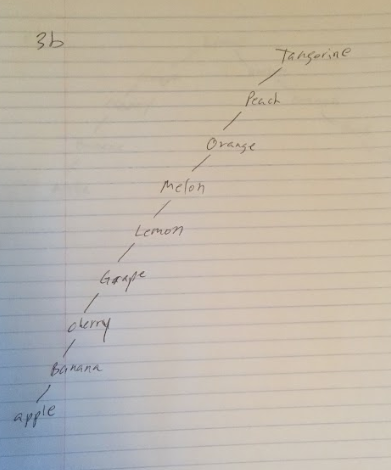 3b
Tangorine
Peach
Orange
Melon
Lemon
Grape
cherry
Banana
apple